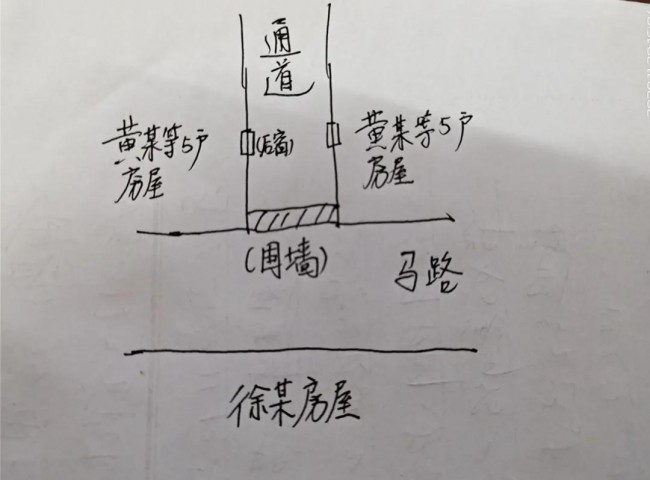 通
道
黄某等5户
房屋
(后窗)
黄某等5户
房屋
(围墙)
马路
徐某房屋